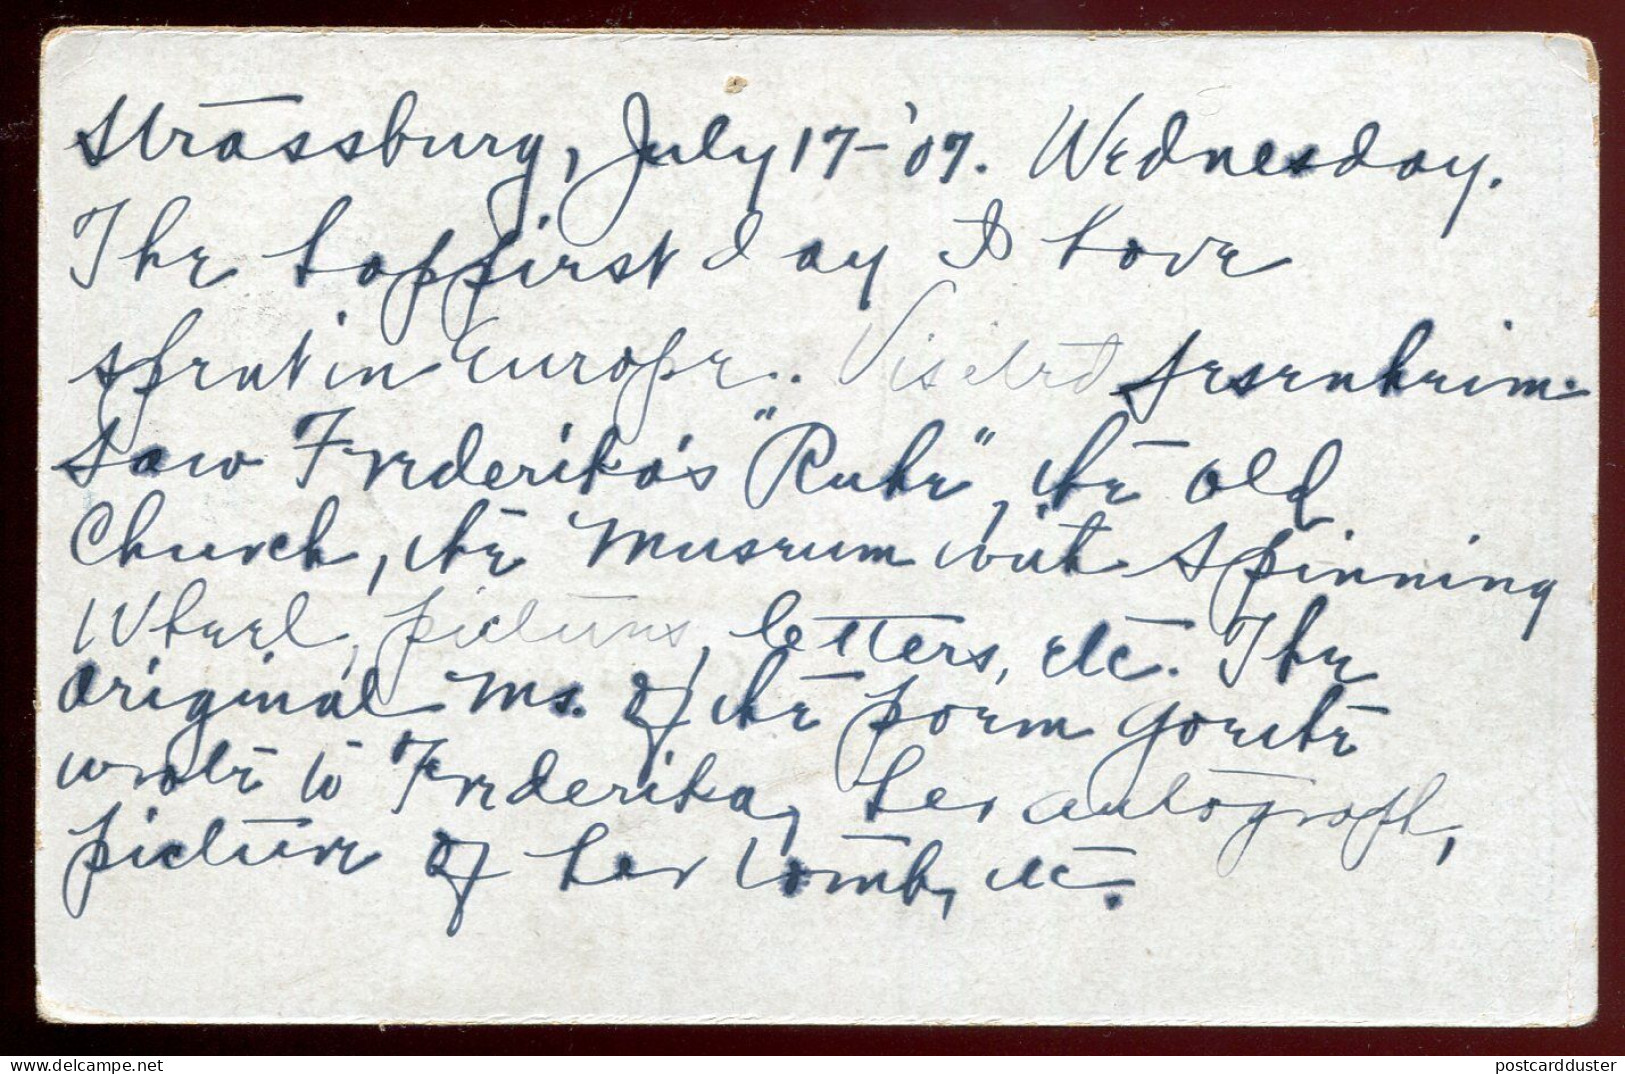 Strassburg, July 17-'07. Wednesday.
The happiest day I have
spent in Europe. Visited Sesenheim.
Saw Frederika's "Ruhe", the old
Church, the Museum with Spinning
Wheel, pictures, letters, etc. The
original Ms. of the poem Goethe
wrote to Frederika, her autograph,
picture of her tomb, etc.
delcampe.net
postcardduster